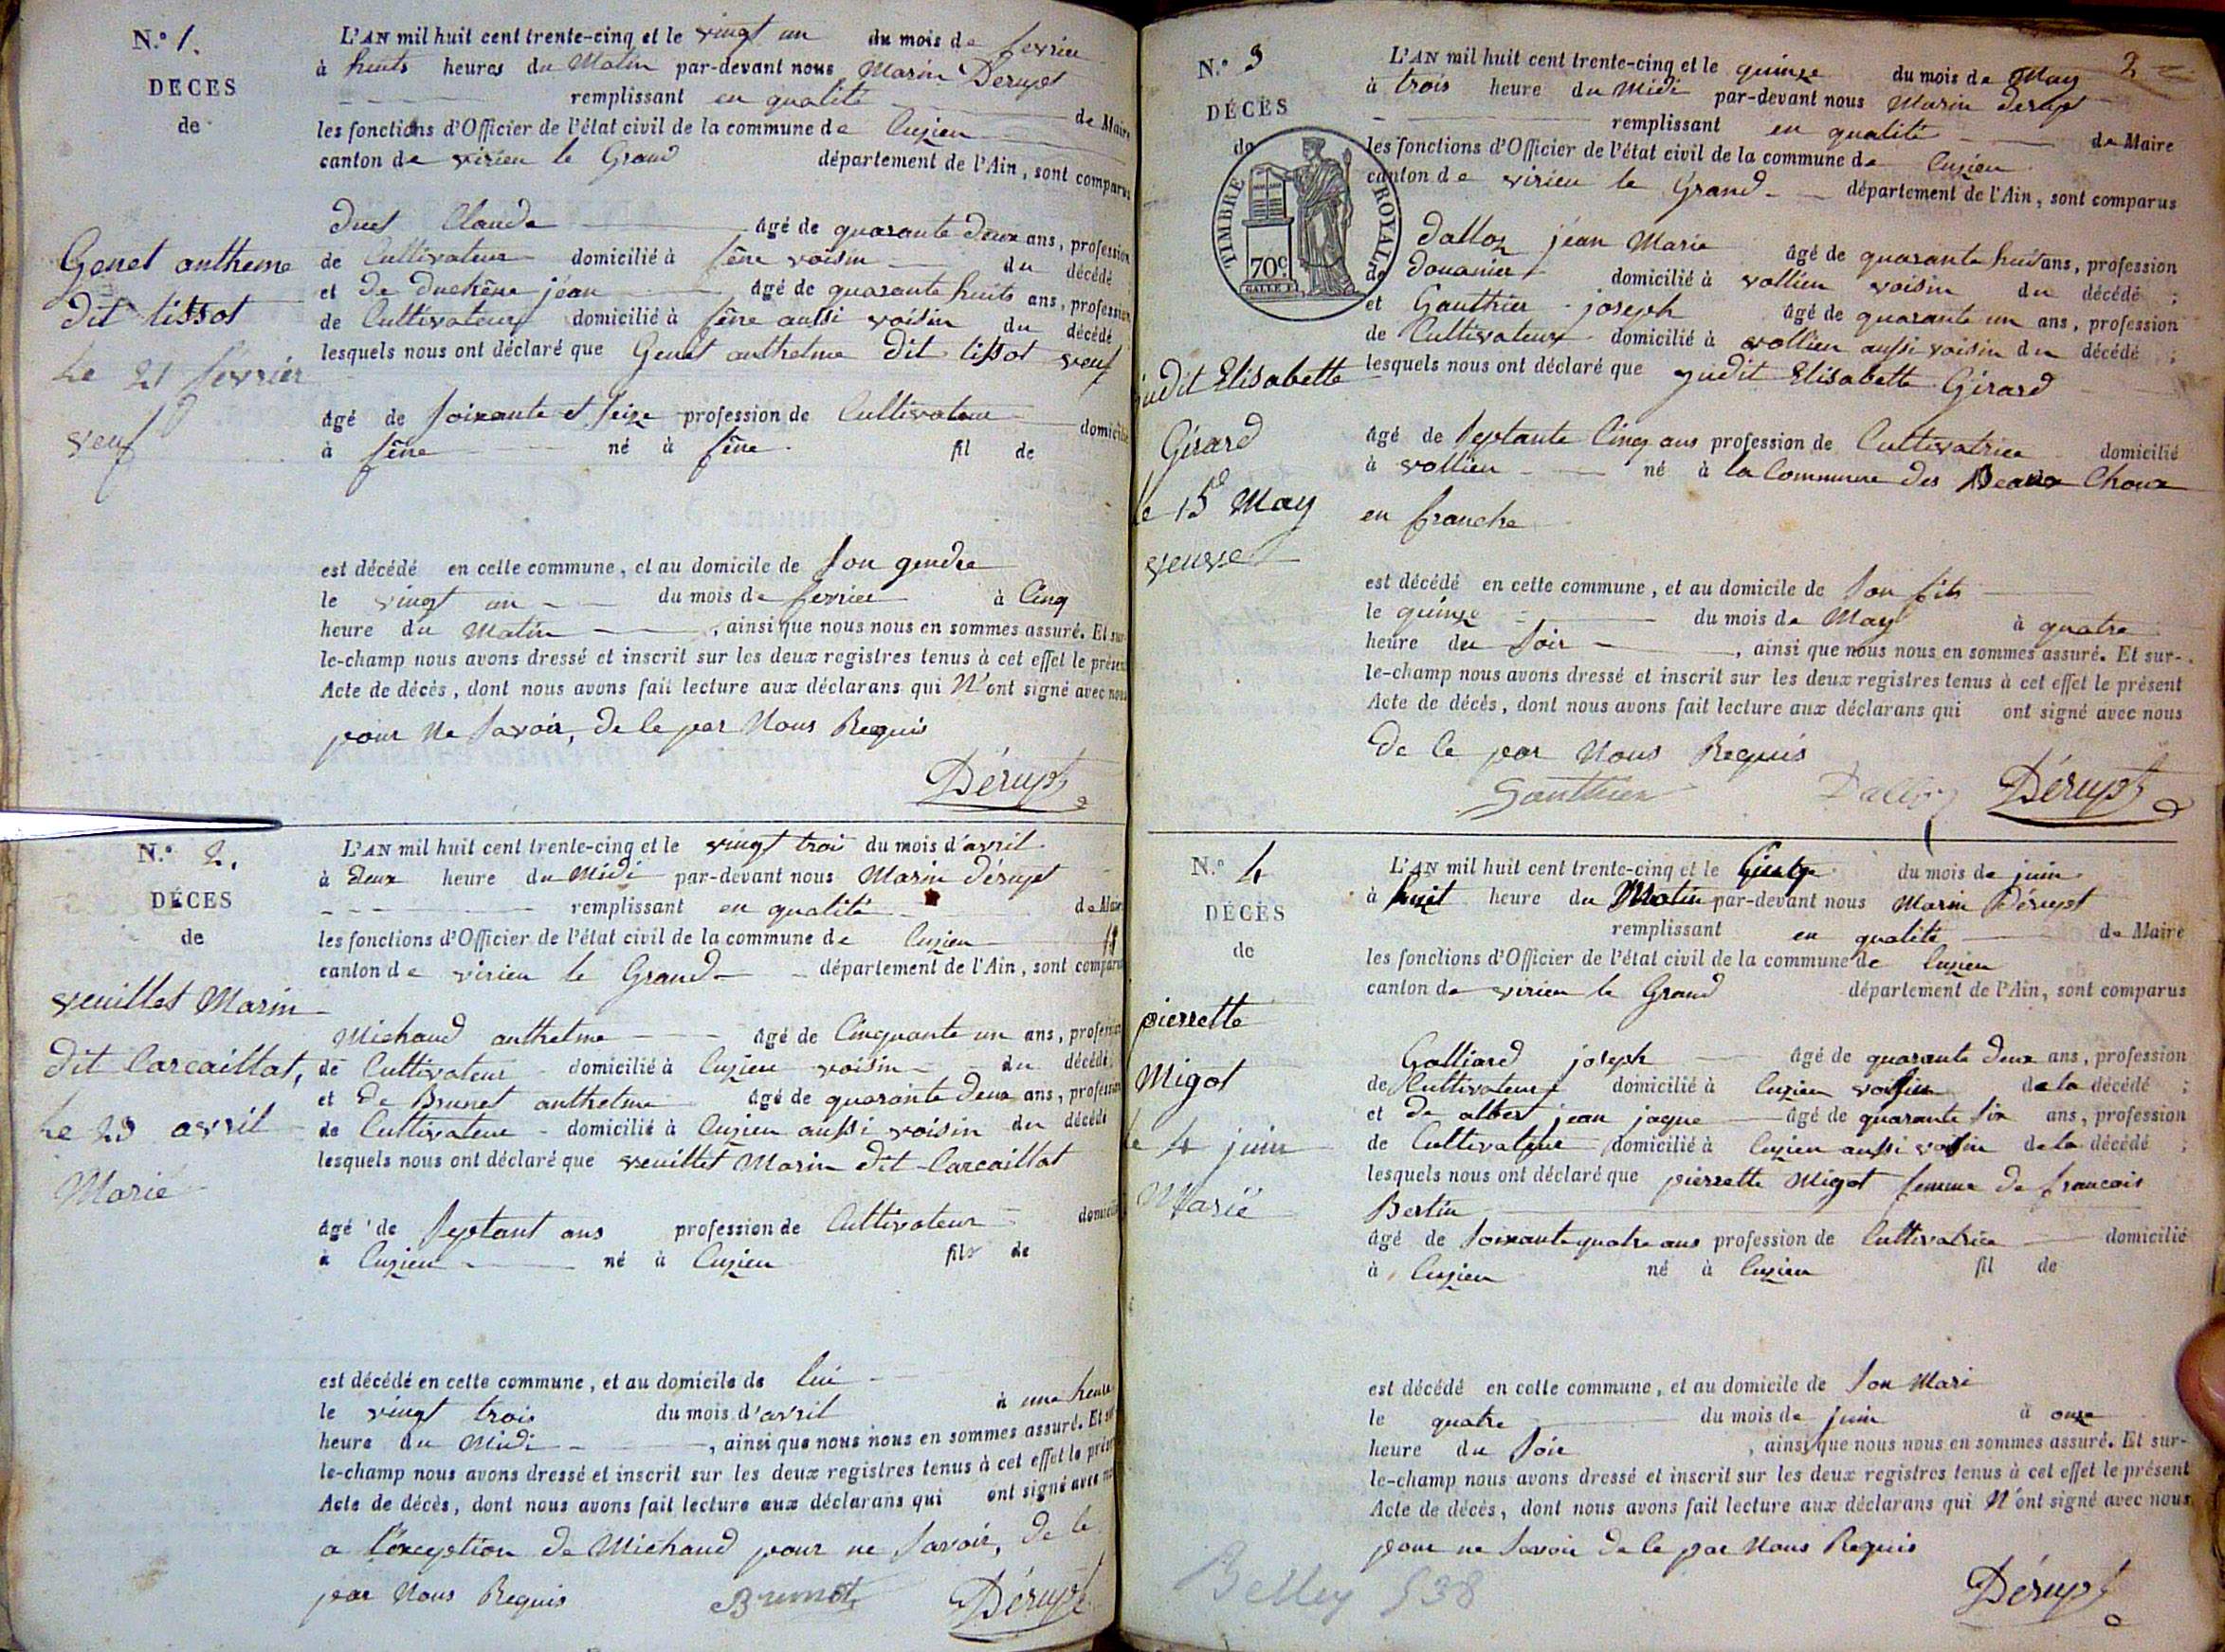 N.º 1.
DECES
de
Genet antheme
dit tissot
Le 21 février
veuf
L'AN mil huit cent trente-cinq et le vingt un du mois de fevrier
à huits heures du Matin par-devant nous Marin Derupt
remplissant en qualité de Maire
les fonctions d'Officier de l'état civil de la commune de Cuzieu
canton de virieu le Grand département de l'Ain, sont comparus
Duet Claude âgé de quarante deux ans, profession
de Cultivateur domicilié à sêne voisin du décédé
et de Duchêne jéan âgé de quarante huits ans, profession
de Cultivateur domicilié à sêne aussi voisin du décédé
lesquels nous ont déclaré que Genet anthelme dit tissot veuf
âgé de soixante et seize profession de Cultivateur domicilié
à sêne né à sêne fil de
est décédé en cette commune, et au domicile de son gendre
le vingt un du mois de fevrier à Cinq
heure du Matin, ainsi que nous nous en sommes assuré. Et sur-
le-champ nous avons dressé et inscrit sur les deux registres tenus à cet effet le présent
Acte de décès, dont nous avons fait lecture aux déclarans qui N'ont signé avec nous
pour Ne savoir, de ce par Nous Requis
Dérupt
N.º 2.
DÉCES
de
veuillet Marin
dit Carcaillat,
Le 23 avril
Marié
L'AN mil huit cent trente-cinq et le vingt trois du mois d'avril
à deux heure du Midi par-devant nous Marin dérupt
remplissant en qualité de Maire
les fonctions d'Officier de l'état civil de la commune de Cuzieu
canton de virieu le Grand département de l'Ain, sont comparus
Michaud anthelme âgé de Cinquante un ans, profession
de Cultivateur domicilié à Cuzieu voisin du décédé
et de Brunet anthelme âgé de quarante deux ans, profession
de Cultivateur domicilié à Cuzieu aussi voisin du décédé
lesquels nous ont déclaré que veuillet Marin dit Carcaillat
âgé de septant ans profession de Cultivateur domicilié
à Cuzieu né à Cuzieu fils de
est décédé en cette commune, et au domicile de lui
le vingt trois du mois d'avril à une heure
heure du Midi, ainsi que nous nous en sommes assuré. Et sur-
le-champ nous avons dressé et inscrit sur les deux registres tenus à cet effet le présent
Acte de décès, dont nous avons fait lecture aux déclarans qui ont signé avec nous
a l'exception de Michaud pour ne savoir, de ce
par Nous Requis Brunet Dérupt
2
N.º 3
DÉCÈS
de
TIMBRE ROYAL
70c
judit Elisabette
Girard
le 15 May
veuve
L'AN mil huit cent trente-cinq et le quinze du mois de May
à trois heure du Midi par-devant nous Marin derupt
remplissant en qualité de Maire
les fonctions d'Officier de l'état civil de la commune de Cuzieu
canton de virieu le Grand département de l'Ain, sont comparus
Dalloz jean Marie âgé de quarante huit ans, profession
de douanier domicilié à vollien voisin du décédé ;
et Gauthier joseph âgé de quarante un ans, profession
de Cultivateur domicilié à vollien aussi voisin du décédé ;
lesquels nous ont déclaré que judit Elisabette Girard
âgé de septante Cinq ans profession de Cultivatrice domicilié
à vollien né à la Commune des Beaux Choux
en franche
est décédé en cette commune, et au domicile de son fils
le quinze du mois de May à quatre
heure du soir, ainsi que nous nous en sommes assuré. Et sur-
le-champ nous avons dressé et inscrit sur les deux registres tenus à cet effet le présent
Acte de décès, dont nous avons fait lecture aux déclarans qui ont signé avec nous
de ce par Nous Requis
Gauthier Dalloz Dérupt
N.º 4
DÉCÈS
de
pierrette
Migot
le 4 juin
Marié
L'AN mil huit cent trente-cinq et le Cinq du mois de juin
à huit heure du Matin par-devant nous Marin Dérupt
remplissant en qualité de Maire
les fonctions d'Officier de l'état civil de la commune de Cuzieu
canton de virieu le Grand département de l'Ain, sont comparus
Galliard joseph âgé de quarante deux ans, profession
de Cultivateur domicilié à Cuzieu voisin de la décédé ;
et de albert jean jaque âgé de quarante six ans, profession
de Cultivateur domicilié à Cuzieu aussi voisin de la décédé ;
lesquels nous ont déclaré que pierrette Migot femme de francois
Bertin
âgé de soixante quatre ans profession de Cultivatrice domicilié
à Cuzieu né à Cuzieu fil de
est décédé en cette commune, et au domicile de son Mari
le quatre du mois de juin à onze
heure du soir, ainsi que nous nous en sommes assuré. Et sur-
le-champ nous avons dressé et inscrit sur les deux registres tenus à cet effet le présent
Acte de décès, dont nous avons fait lecture aux déclarans qui N'ont signé avec nous
pour ne savoir de ce par Nous Requis
Dérupt
Belley 538